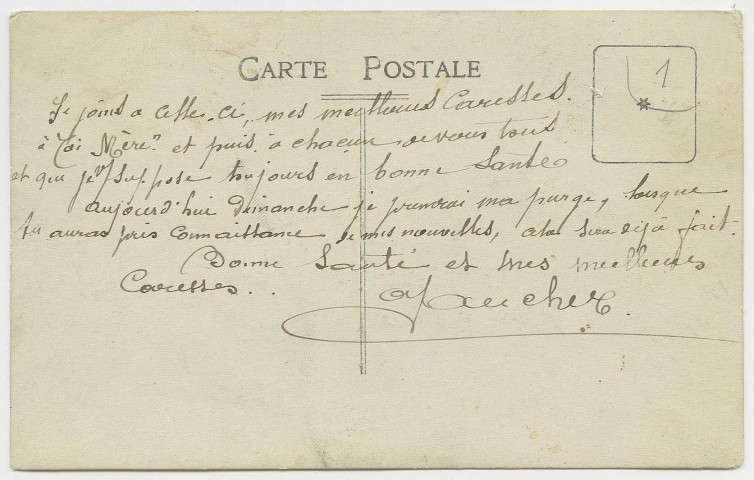 CARTE POSTALE
1
Je joins a celle-ci, mes meilleures Caresses.
à Toi Mère" et puis à chacun de vous tous
et que je suppose toujours en bonne Santé
aujourd'hui Dimanche je prendrai ma purge, lorsque
tu auras pris connaissance de mes nouvelles, cela sera déjà fait.
Bonne Santé et mes meilleures
Caresses.